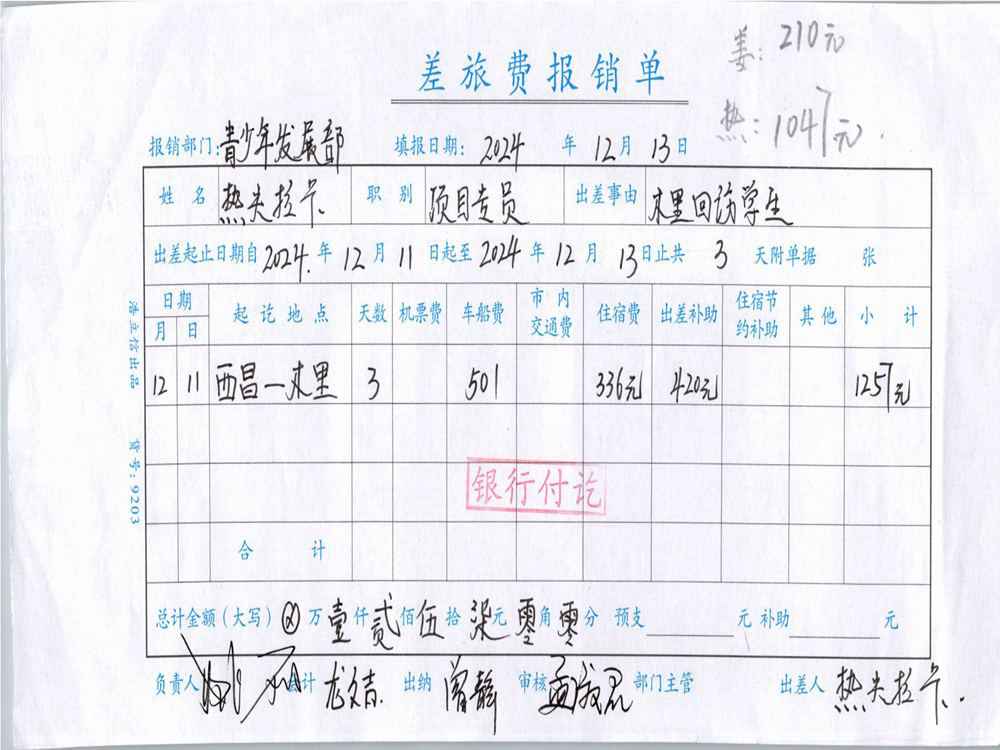 姜：210元
差旅费报销单
热：1047元.
报销部门：青少年发展部 填报日期：2024 年 12月 13日
姓名 热夫拉卡 职别 项目专员 出差事由 木里回访学生
出差起止日期自2024.年12月11日起至2024年12月13日止共3天附单据 张
日期 起讫地点 天数 机票费 车船费 市内交通费 住宿费 出差补助 住宿节约补助 其他 小计
月 日
12 11 西昌—木里 3 501 336元 420元 1257元
银行付讫
合计
总计金额（大写）⊗万壹仟贰佰伍拾柒元零角零分 预支 元 补助 元
负责人 会计 出纳 曾静 审核 部门主管 出差人 热夫拉卡.
浩立信出品 货号：9203